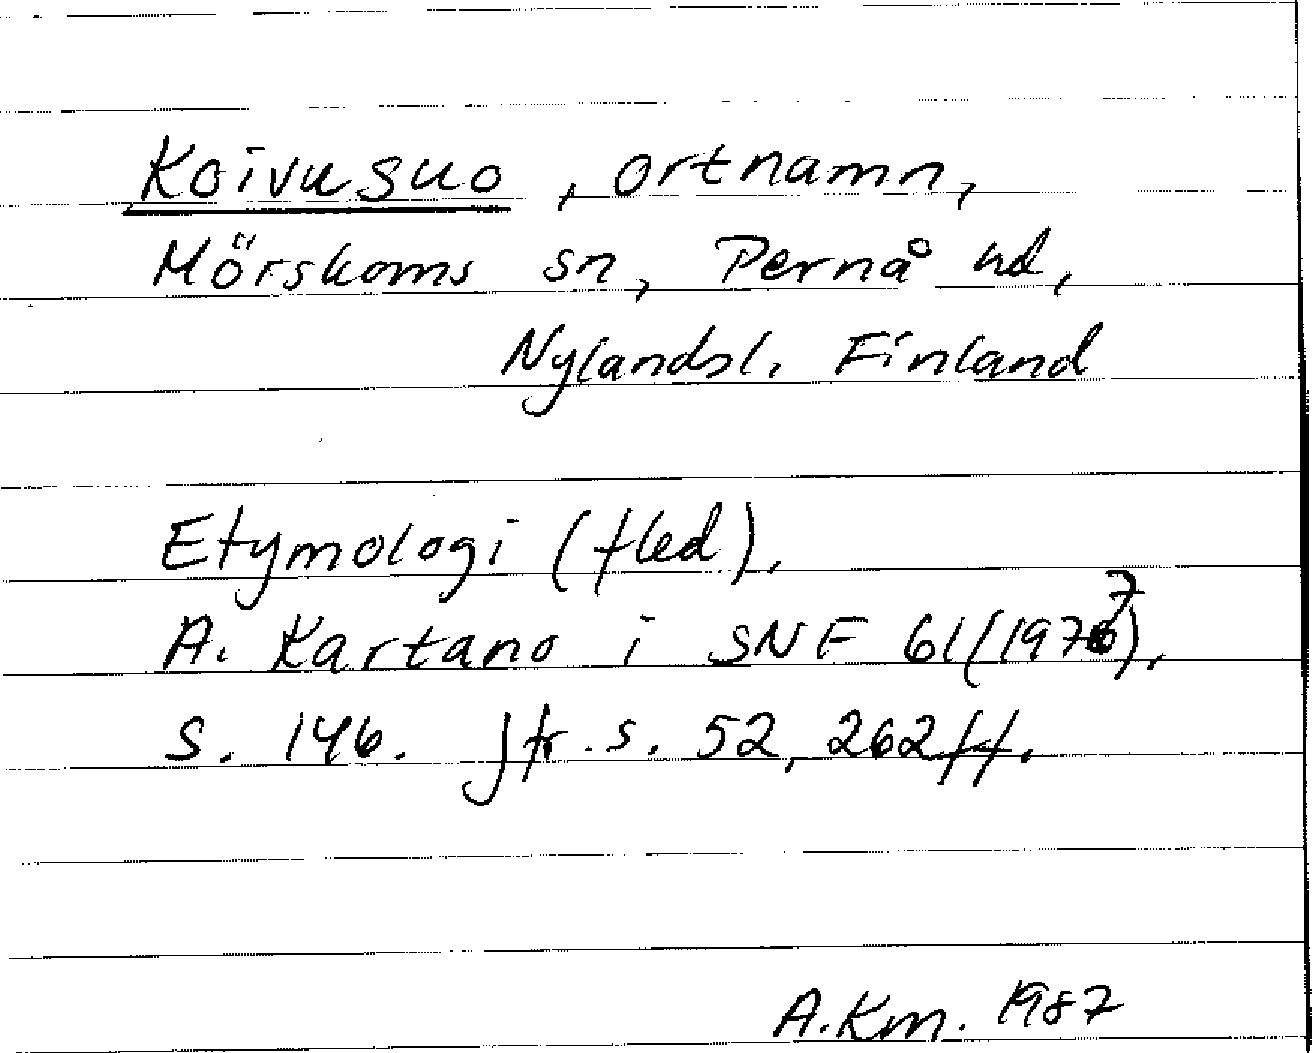 Koivusuo, ortnamn,
Mörskoms sn, Pernå hd,
Nylandsl. Finland
Etymologi (fled).
A. Kartano i SNF 61(1977),
s. 146. Jfr. s. 52, 262ff.
A.Km. 1987